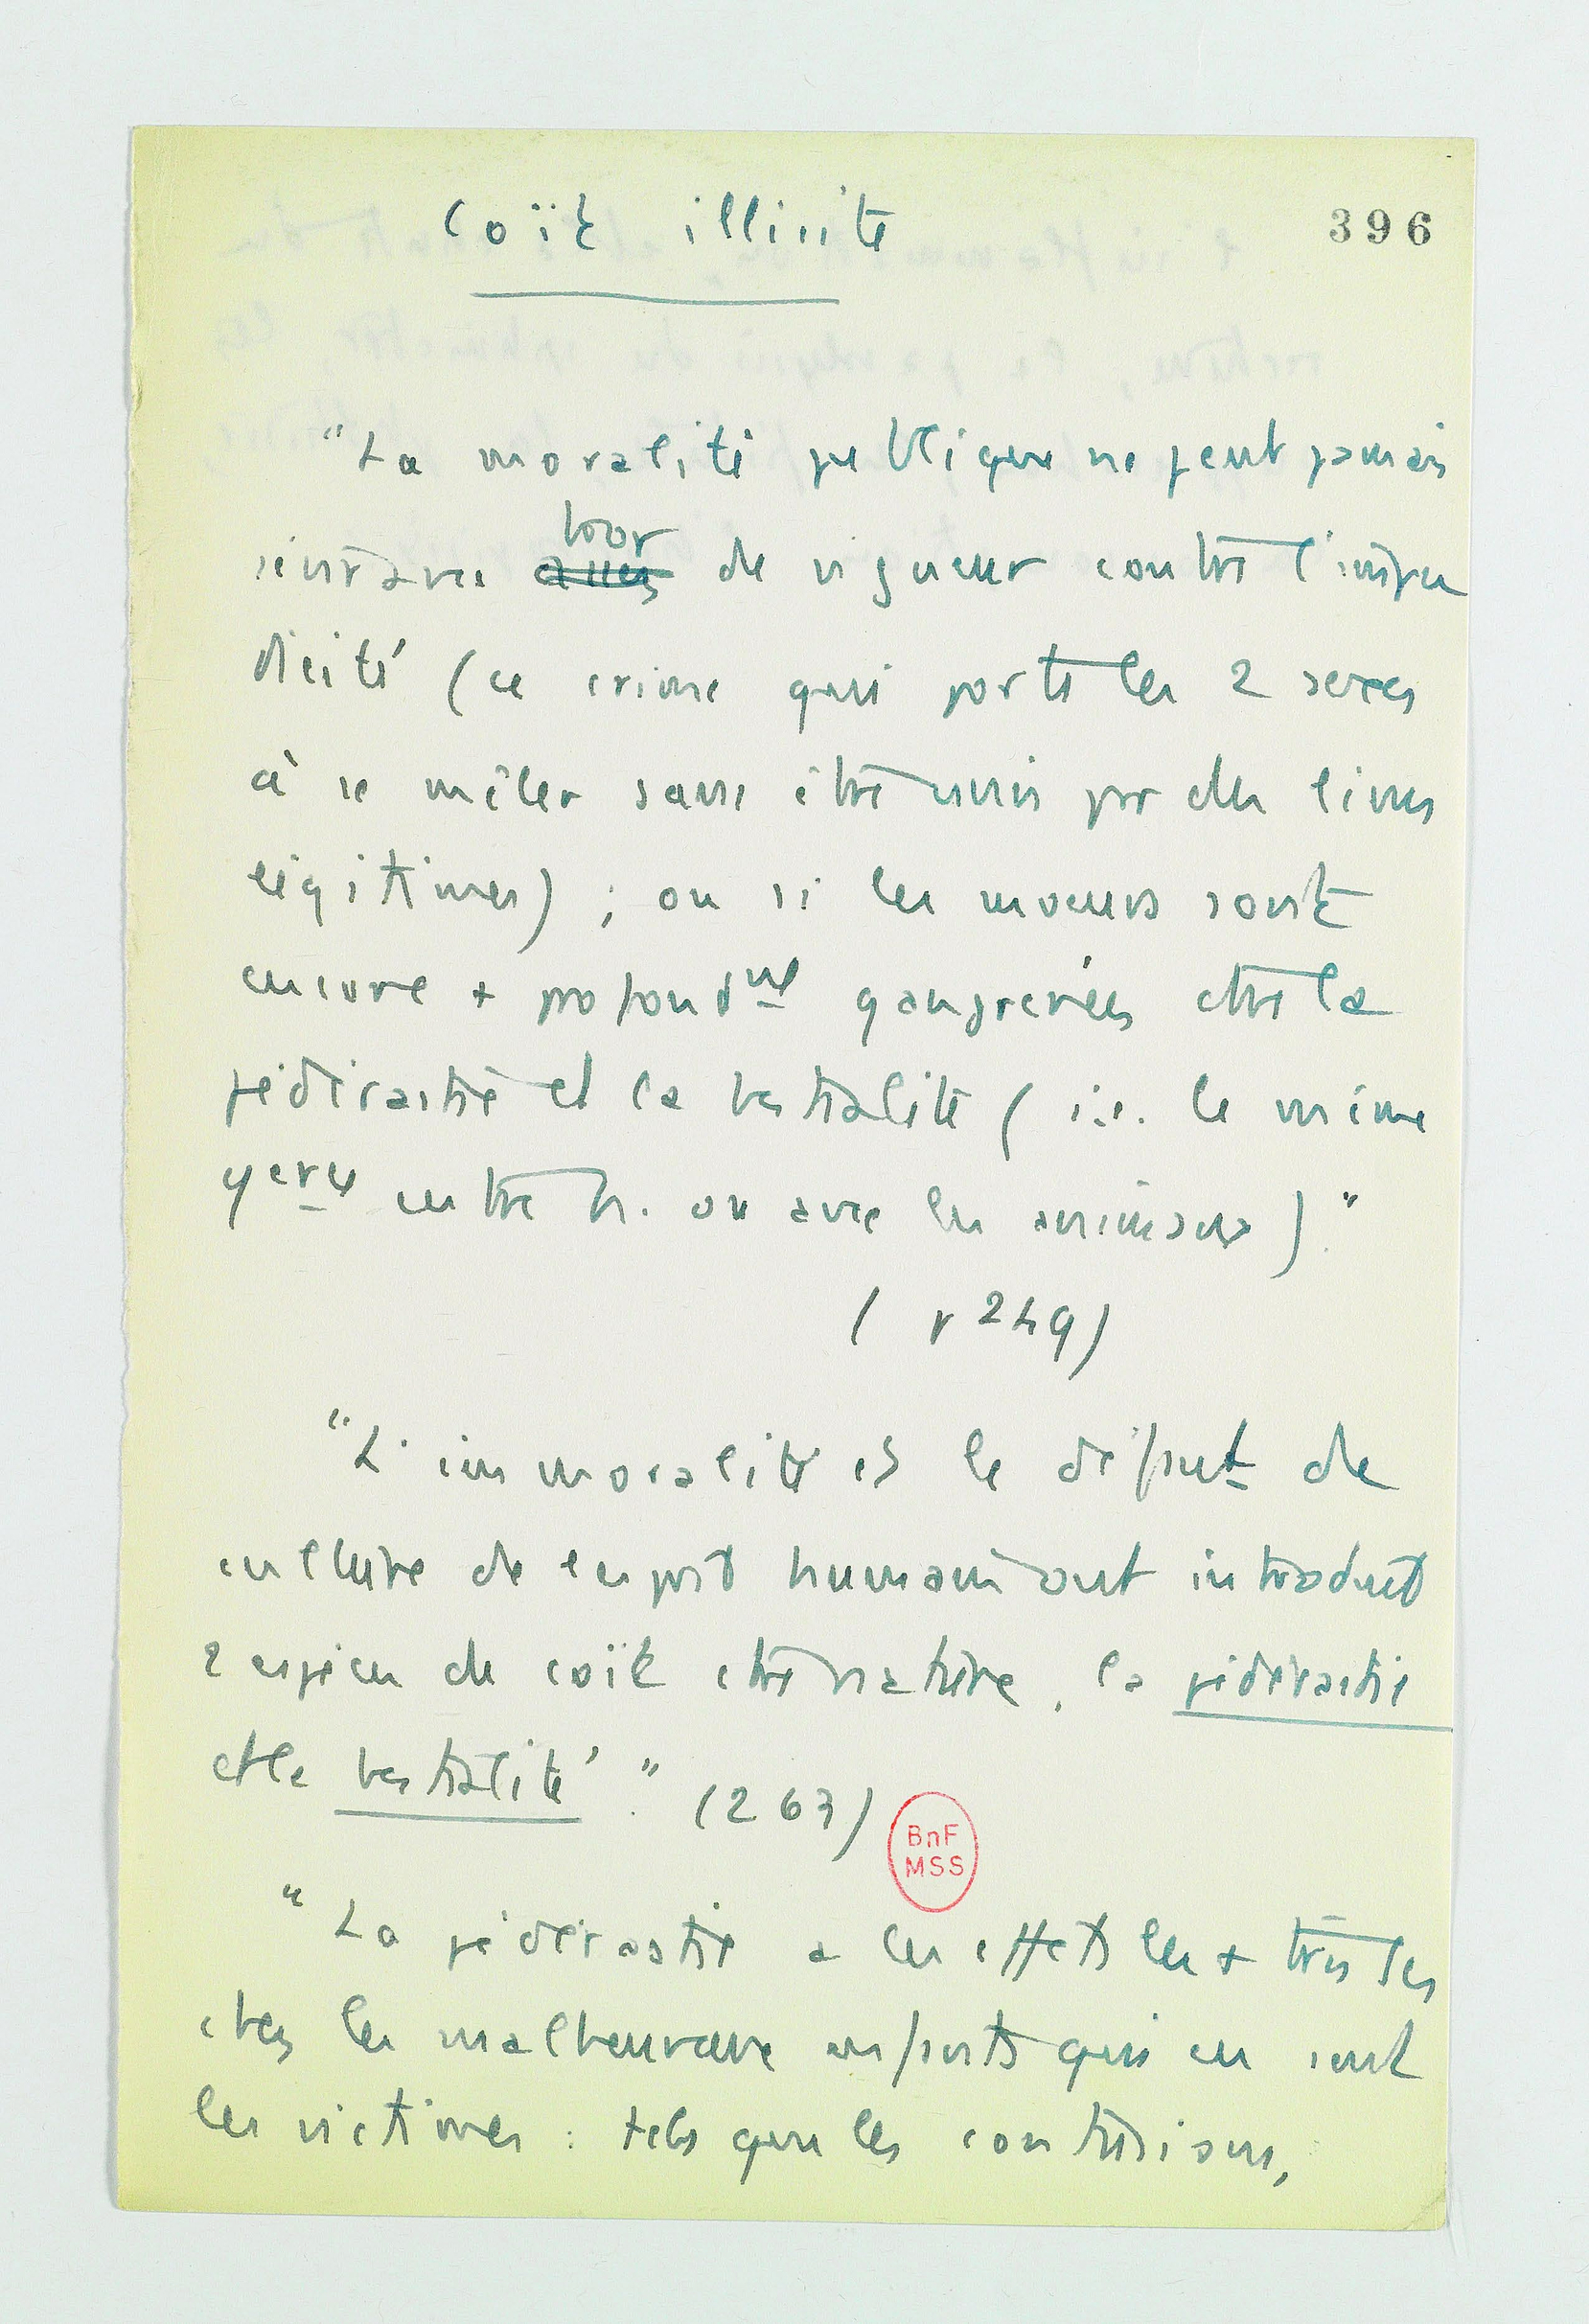 Coït illicite
396
"La moralité publique ne peut jamais
sévir avec assez trop de vigueur contre l'impu
dicité (ce crime qui porte les 2 sexes
à se mêler sans être unis par des liens
légitimes) ; ou si les moeurs sont
encore + profondmt gangrenées ctre la
pédérastie et la bestialité (i.e. le même
entre h. ou avec les animaux)."
(p 249)
"L'immoralité et le défaut de
culture de l'esprit humain ont introduit
2 espèces de coït ctre nature, la pédérastie
et la bestialité." (263)
BnF
MSS
"La pédérastie a les effets les + tristes
chez les malheureux enfants qui en sont
les victimes : tels que les contusions,